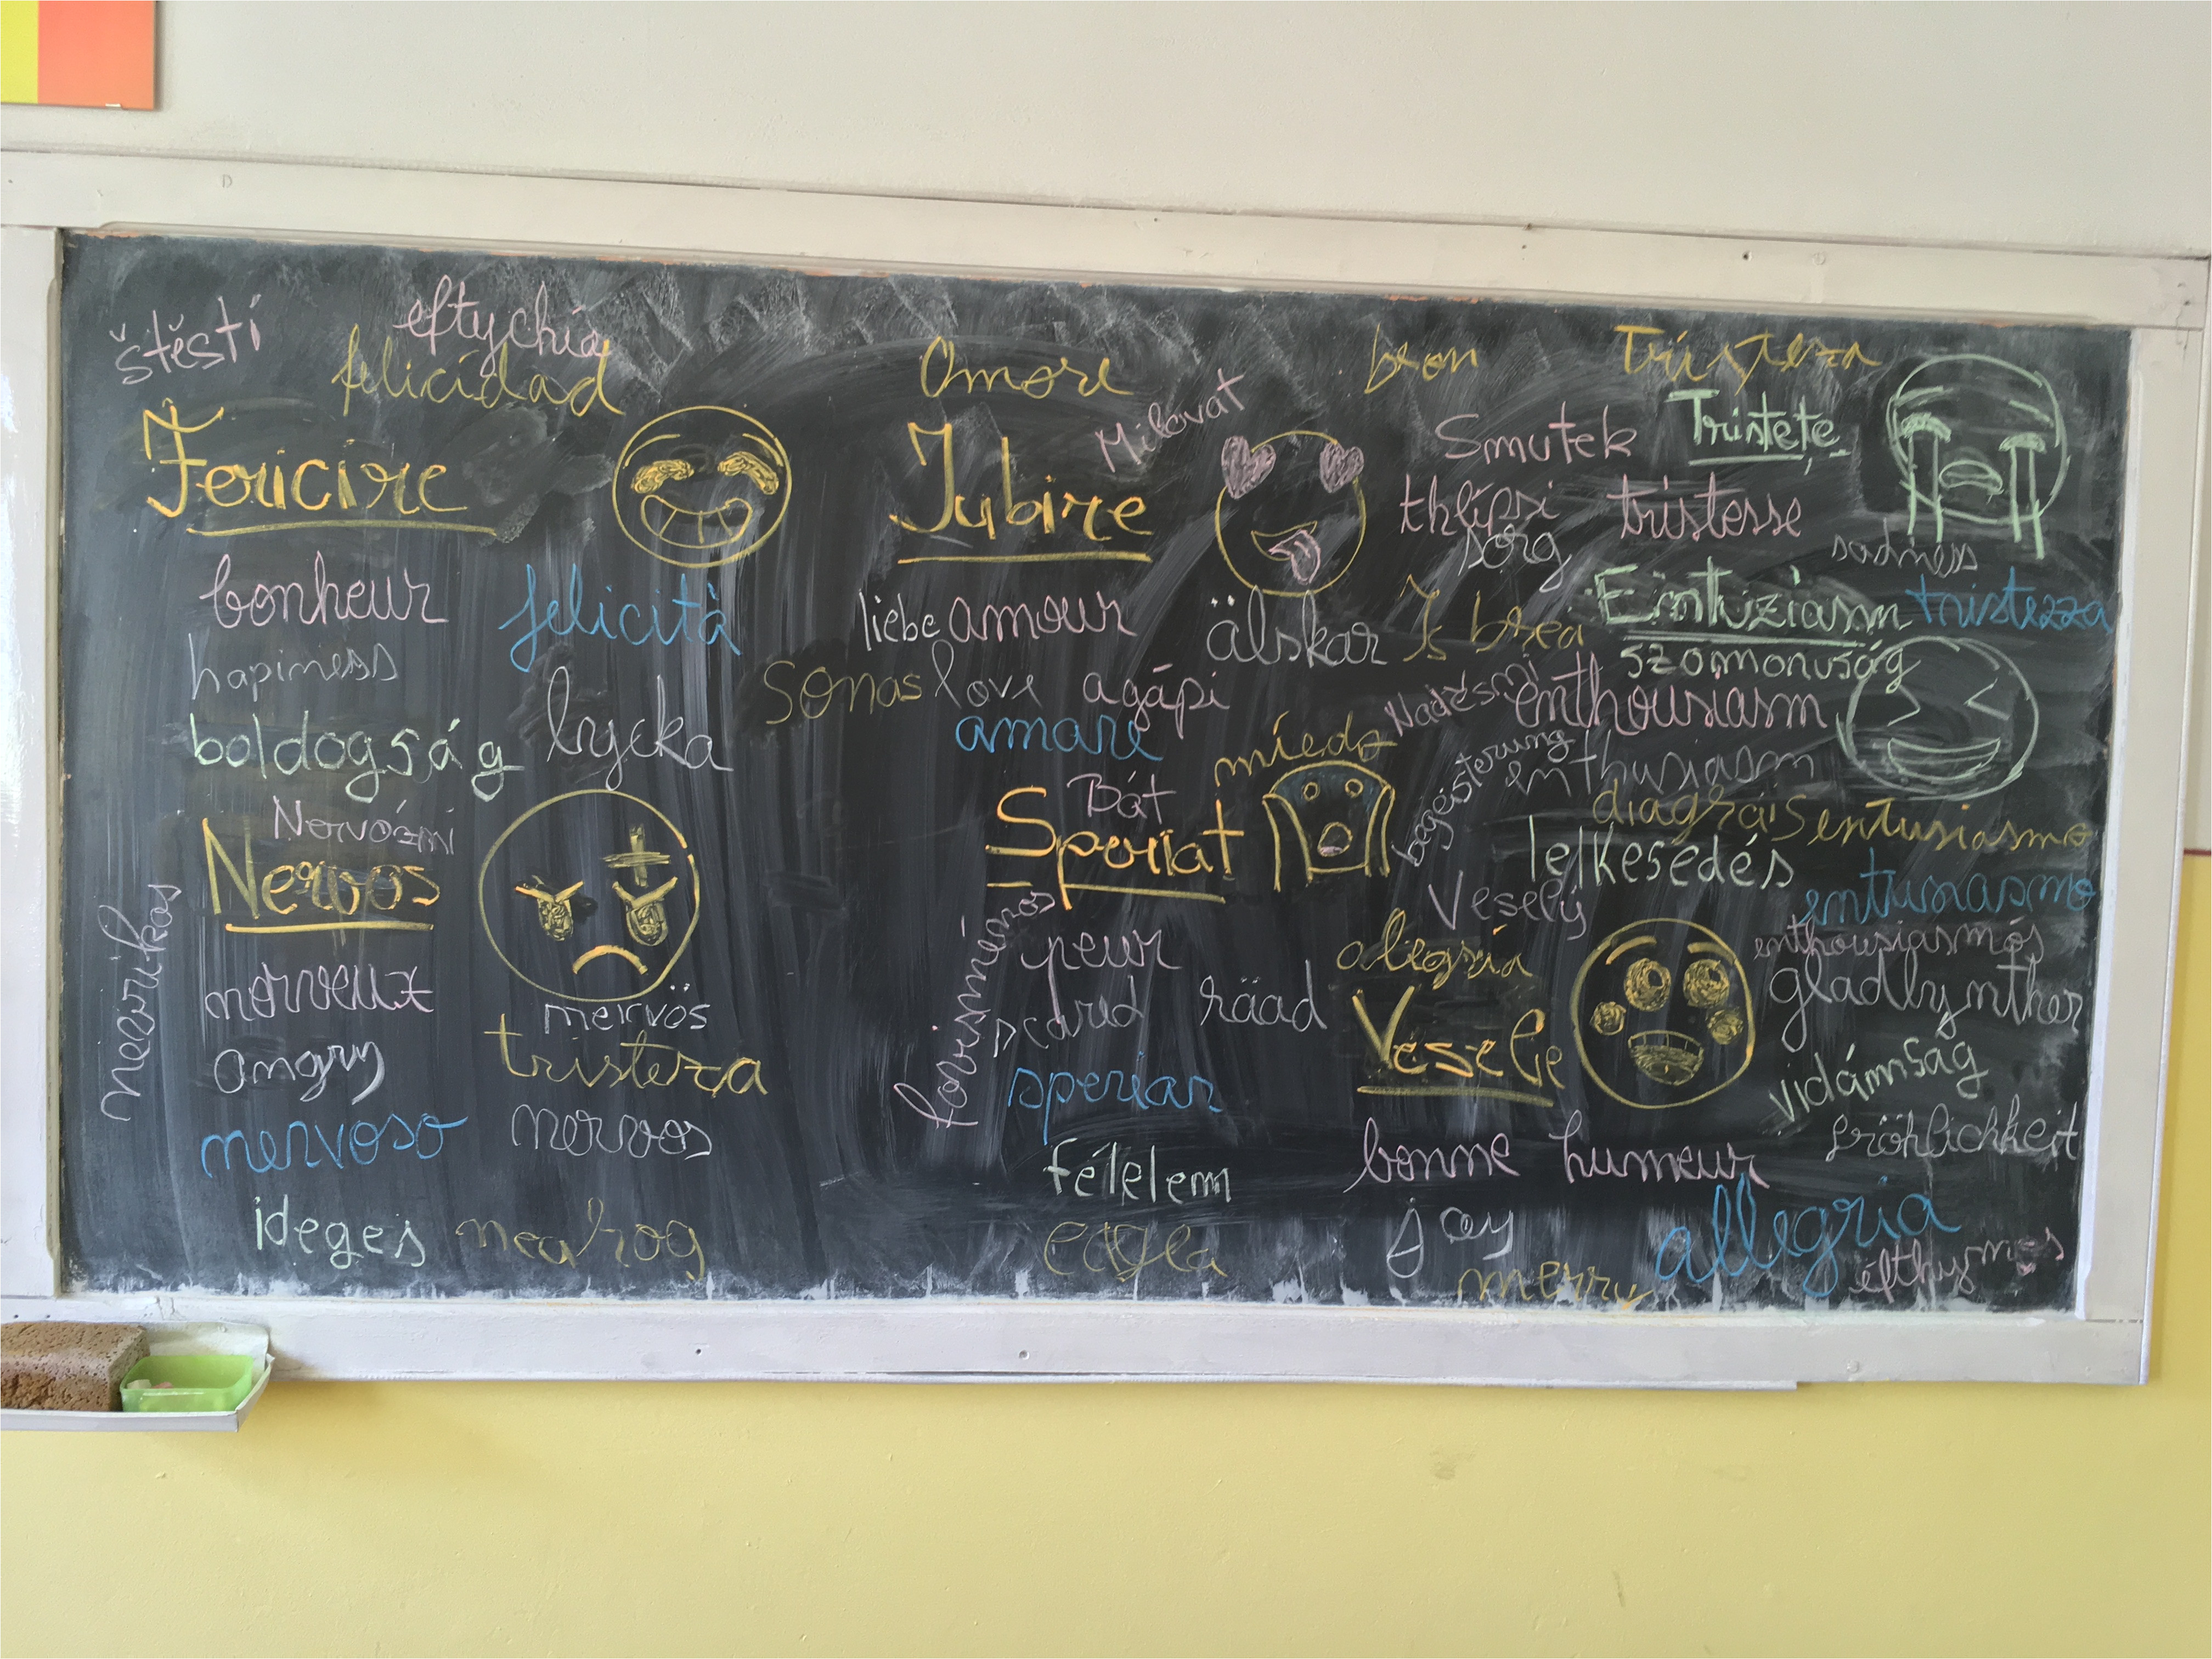 štěstí
eftychía
felicidad
Fericire
bonheur
felicità
hapiness
boldogság
lycka
Nervózní
Nervos
nevrikos
nerveux
nervös
angry
tristeza
nervoso
nervos
ideges
nearbhog
Omore
Milovat
Iubire
liebe amour
älskar
Sonas love agápi
amare
miedo
Bát
Speriat
fovisménos
peur
scared
räad
speriar
félelem
eagla
bron
Tristeza
Smutek
Tristețe
thlípsi
tristesse
sorg
sadness
Is brea
Entuziasm
tristezza
szomorúság
Nadšení
enthousiasm
begeisterung
enthusiasm
díograis entusiasmo
lelkesedés
Veselý
entusiasmo
enthousiasmós
alegria
gladlynther
Veselie
vidámság
fröhlichkeit
bonne humeur
joy
allegria
merry
éfthymos